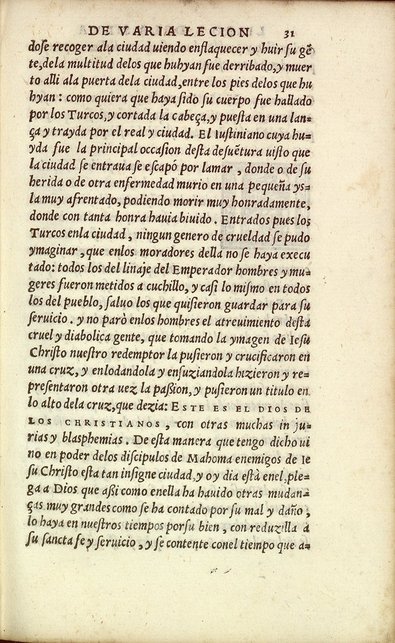 DE VARIA LECION 31
dose recoger ala ciudad uiendo enflaquecer y huir su gē
te, dela multitud delos que huhyan fue derribado, y muer
to alli ala puerta dela ciudad, entre los pies delos que hu
hyan: como quiera que haya sido su cuerpo fue hallado
por los Turcos, y cortada la cabeça, y puesta en una lan-
ça y trayda por el real y ciudad. El Iustiniano cuya hu-
yda fue la principal occasion desta desuētura uisto que
la ciudad se entraua se escapó por lamar, donde o de su
herida o de otra enfermedad murio en una pequeña ys-
la muy afrentado, podiendo morir muy honradamente,
donde con tanta honra hauia biuido. Entrados pues los
Turcos enla ciudad, ningun genero de crueldad se pudo
ymaginar, que enlos moradores della no se haya execu
tado: todos los del linaje del Emperador hombres y mu-
geres fueron metidos a cuchillo, y casi lo mismo en todos
los del pueblo, saluo los que quisieron guardar para su
seruicio. y no parò enlos hombres el atreuimiento desta
cruel y diabolica gente, que tomando la ymagen de Iesu
Christo nuestro redemptor la pusieron y crucificaron en
una cruz, y enlodandola y ensuziandola hizieron y re-
presentaron otra uez la passion, y pusieron un titulo en
lo alto dela cruz, que dezia: ESTE ES EL DIOS DE
LOS CHRISTIANOS, con otras muchas in ju-
rias y blasphemias. De esta manera que tengo dicho ui
no en poder delos discipulos de Mahoma enemigos de Ie
su Christo esta tan insigne ciudad, y oy dia està enel, ple-
ga a Dios que assi como enella ha hauido otras mudan-
ças muy grandes como se ha contado por su mal y daño,
lo haya en nuestros tiempos por su bien, con reduzilla a
su sancta fe y seruicio, y se contente conel tiempo que a-